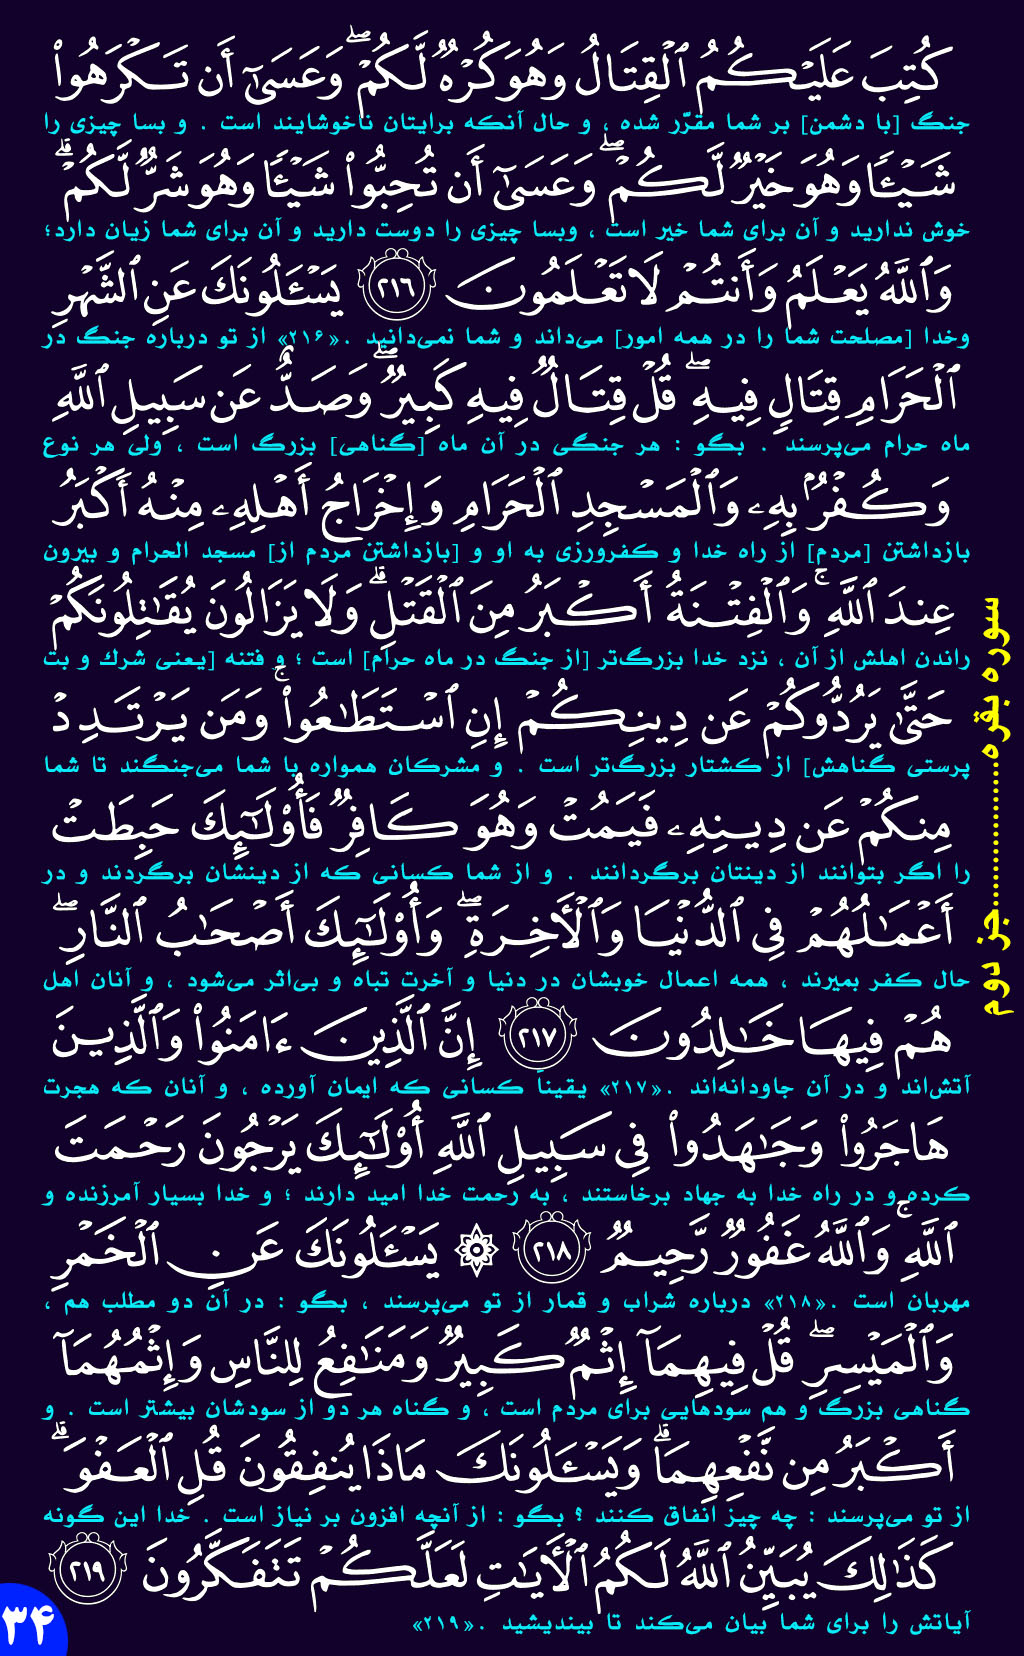 كُتِبَ عَلَيْكُمُ ٱلْقِتَالُ وَهُوَ كُرْهٌ لَّكُمْ ۖ وَعَسَىٰٓ أَن تَكْرَهُوا۟
جنگ [با دشمن] بر شما مقرّر شده ، و حال آنکه برایتان ناخوشایند است . و بسا چیزی را
شَيْـًٔا وَهُوَ خَيْرٌ لَّكُمْ ۖ وَعَسَىٰٓ أَن تُحِبُّوا۟ شَيْـًٔا وَهُوَ شَرٌّ لَّكُمْ ۗ
خوش ندارید و آن برای شما خیر است ، وبسا چیزی را دوست دارید و آن برای شما زیان دارد؛
وَٱللَّهُ يَعْلَمُ وَأَنتُمْ لَا تَعْلَمُونَ ٢١٦ يَسْـَٔلُونَكَ عَنِ ٱلشَّهْرِ
وخدا [مصلحت شما را در همه امور] می‌داند و شما نمی‌دانید .«۲۱۶» از تو درباره جنگ در
ٱلْحَرَامِ قِتَالٍ فِيهِ ۖ قُلْ قِتَالٌ فِيهِ كَبِيرٌ ۖ وَصَدٌّ عَن سَبِيلِ ٱللَّهِ
ماه حرام می‌پرسند . بگو : هر جنگی در آن ماه [گناهی] بزرگ است ، ولی هر نوع
وَكُفْرٌۢ بِهِۦ وَٱلْمَسْجِدِ ٱلْحَرَامِ وَإِخْرَاجُ أَهْلِهِۦ مِنْهُ أَكْبَرُ
بازداشتن [مردم] از راه خدا و کفرورزی به او و [بازداشتن مردم از] مسجد الحرام و بیرون
عِندَ ٱللَّهِ ۚ وَٱلْفِتْنَةُ أَكْبَرُ مِنَ ٱلْقَتْلِ ۗ وَلَا يَزَالُونَ يُقَـٰتِلُونَكُمْ
راندن اهلش از آن ، نزد خدا بزرگ‌تر [از جنگ در ماه حرام] است ؛ و فتنه [یعنی شرک و بت
حَتَّىٰ يَرُدُّوكُمْ عَن دِينِكُمْ إِنِ ٱسْتَطَـٰعُوا۟ ۚ وَمَن يَرْتَدِدْ
پرستی گناهش] از کشتار بزرگ‌تر است . و مشرکان همواره با شما می‌جنگند تا شما
مِنكُمْ عَن دِينِهِۦ فَيَمُتْ وَهُوَ كَافِرٌ فَأُو۟لَـٰٓئِكَ حَبِطَتْ
را اگر بتوانند از دینتان برگردانند . و از شما کسانی که از دینشان برگردند و در
أَعْمَـٰلُهُمْ فِى ٱلدُّنْيَا وَٱلْـَٔاخِرَةِ ۖ وَأُو۟لَـٰٓئِكَ أَصْحَـٰبُ ٱلنَّارِ ۖ
حال کفر بمیرند ، همه اعمال خوبشان در دنیا و آخرت تباه و بی‌اثر می‌شود ، و آنان اهل
هُمْ فِيهَا خَـٰلِدُونَ ٢١٧ إِنَّ ٱلَّذِينَ ءَامَنُوا۟ وَٱلَّذِينَ
آتش‌اند و در آن جاودانه‌اند .«۲۱۷» یقیناً کسانی که ایمان آورده ، و آنان که هجرت
هَاجَرُوا۟ وَجَـٰهَدُوا۟ فِى سَبِيلِ ٱللَّهِ أُو۟لَـٰٓئِكَ يَرْجُونَ رَحْمَتَ
کرده و در راه خدا به جهاد برخاستند ، به رحمت خدا امید دارند ؛ و خدا بسیار آمرزنده و
ٱللَّهِ ۚ وَٱللَّهُ غَفُورٌ رَّحِيمٌ ٢١٨ ۞ يَسْـَٔلُونَكَ عَنِ ٱلْخَمْرِ
مهربان است .«۲۱۸» درباره شراب و قمار از تو می‌پرسند ، بگو : در آن دو مطلب هم ،
وَٱلْمَيْسِرِ ۖ قُلْ فِيهِمَآ إِثْمٌ كَبِيرٌ وَمَنَـٰفِعُ لِلنَّاسِ وَإِثْمُهُمَآ
گناهی بزرگ و هم سودهایی برای مردم است ، و گناه هر دو از سودشان بیشتر است . و
أَكْبَرُ مِن نَّفْعِهِمَا ۗ وَيَسْـَٔلُونَكَ مَاذَا يُنفِقُونَ قُلِ ٱلْعَفْوَ ۗ
از تو می‌پرسند : چه چیز انفاق کنند ؟ بگو : از آنچه افزون بر نیاز است . خدا این گونه
كَذَٰلِكَ يُبَيِّنُ ٱللَّهُ لَكُمُ ٱلْـَٔايَـٰتِ لَعَلَّكُمْ تَتَفَكَّرُونَ ٢١٩
آیاتش را برای شما بیان می‌کند تا بیندیشید .«۲۱۹»
سوره بقره....................جز دوم
۳۴